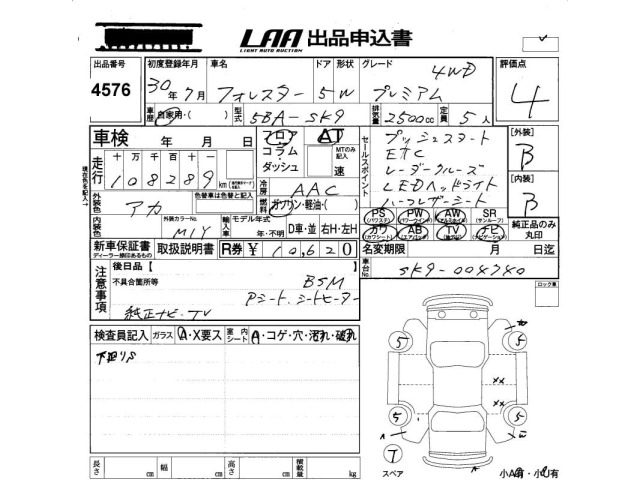 LAA 出品申込書
LIGHT AUTO AUCTION
出品番号 初度登録年月 車名 ドア 形状 グレード 評価点
4576 30年7月 フォレスター 5 W プレミアム 4WD 4
車歴 自家用・( ) 型式 5BA-SK9 排気量 2500cc 定員 5人
車検 年 月 日 フロア AT セールスポイント プッシュスタート [外装]
コラム MTのみ記入 ETC B
走行 十 万 千 百 十 ダッシュ 速 レーダークルーズ
108289 km 冷房 AAC LEDヘッドライト [内装]
色替車は色替と記入 燃料 ガソリン・軽油・( ) ハーフレザーシート B
外装色 アカ
外装カラーNo. M1Y 輸入車 モデル年式 年・不明 D車・並 右H・左H
PS PW AW SR 純正品のみ丸印
(パワステ) (パワーウインド) (アルミホイル) (サンルーフ)
カワ AB TV ナビ
(カワシート) (エアバッグ)
新車保証書 取扱説明書 R券 ¥10,620 名変期限 月 日迄
ディーラー印あるもの
車台No. SK9-004740
注意事項 後日品【 】
不具合箇所等 BSM
Pシート、シートヒーター
純正ナビ・TV
ロック車
検査員記入 ガラス A・X要ス 室内シート A・コゲ・穴・汚れ・破れ
下廻りS
5 5
xx
xx
5 5
A
T
スペア
長さ cm 幅 cm 高さ cm 積載量 kg